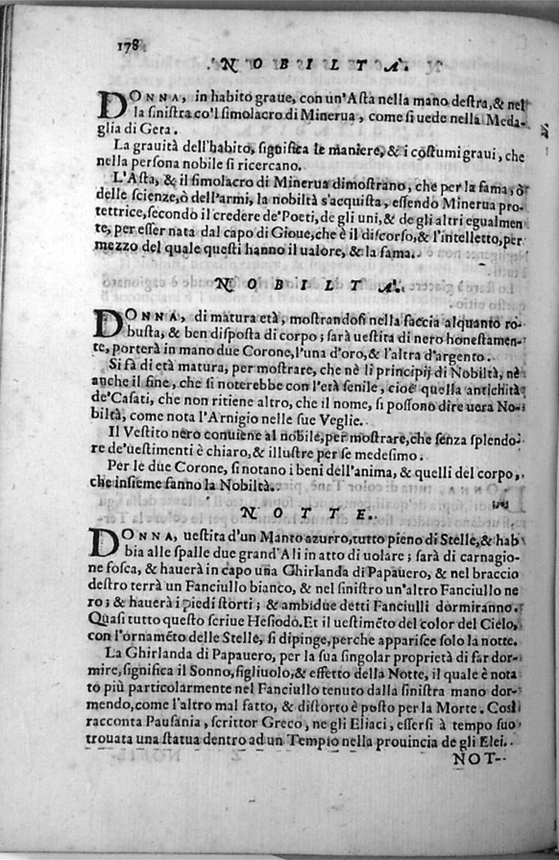 178
NOBILTA.
DONNA, in habito graue, con un'Asta nella mano destra, & nel
la sinistra co'l simolacro di Minerua, come si uede nella Meda-
glia di Geta.
La grauità dell'habito, significa le maniere, & i costumi graui, che
nella persona nobile si ricercano.
L'Asta, & il simolacro di Minerua dimostrano, che per la fama, ò
delle scienze, ò dell'armi, la nobiltà s'acquista, essendo Minerua pro-
tettrice, secondo il credere de'Poeti, de gli uni, & de gli altri egualmen
te, per esser nata dal capo di Gioue, che è il discorso, & l'intelletto, per
mezzo del quale questi hanno il ualore, & la fama.
NOBILTA.
DONNA, di matura età, mostrandosi nella faccia alquanto ro-
busta, & ben disposta di corpo; sarà uestita di nero honestamen-
te, porterà in mano due Corone, l'una d'oro, & l'altra d'argento.
Si fà di età matura, per mostrare, che nè li principij di Nobiltà, nè
anche il fine, che si noterebbe con l'età senile, cioè quella antichità
de'Casati, che non ritiene altro, che il nome, si possono dire uera No-
biltà, come nota l'Arnigio nelle sue Veglie.
Il Vestito nero conuiene al nobile, per mostrare, che senza splendo-
re de'uestimenti è chiaro, & illustre per se medesimo.
Per le due Corone, si notano i beni dell'anima, & quelli del corpo,
che insieme fanno la Nobiltà.
NOTTE.
DONNA, uestita d'un Manto azurro, tutto pieno di Stelle, & hab
bia alle spalle due grand'Ali in atto di uolare; sarà di carnagio-
ne fosca, & hauerà in capo una Ghirlanda di Papauero, & nel braccio
destro terrà un Fanciullo bianco, & nel sinistro un'altro Fanciullo ne
ro; & hauerà i piedi storti; & ambidue detti Fanciulli dormiranno.
Quasi tutto questo scriue Hesiodo. Et il uestimẽto del color del Cielo,
con l'ornamẽto delle Stelle, si dipinge, perche apparisce solo la notte.
La Ghirlanda di Papauero, per la sua singolar proprietà di far dor-
mire, significa il Sonno, figliuolo, & effetto della Notte, il quale è nota
to più particolarmente nel Fanciullo tenuto dalla sinistra mano dor-
mendo, come l'altro mal fatto, & distorto è posto per la Morte. Così
racconta Pausania, scrittor Greco, ne gli Eliaci, essersi à tempo suo
trouata una statua dentro ad un Tempio nella prouincia de gli Elei.
NOT-